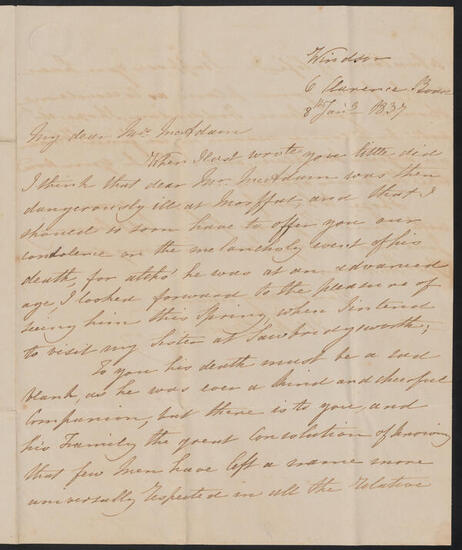 Windsor
6 Clarence
8th Jan'y 1837
My dear Mrs. McAdam
When I last wrote you little did
I think that dear Mr. McAdam was then
dangerously ill at Moffat, and that I
should so soon have to offer you our
condolence on the melancholy event of his
death, for altho' he was at an advanced
age, I looked forward to the pleasure of
seeing him this Spring when I intend
to visit my Sister at Sawbridgeworth;
To you his death must be a sad
blank, as he was ever a kind and cheerful
Companion, but there is to you, and
his Family the great Consolation of knowing
that few Men have left a name more
universally respected in all the relative